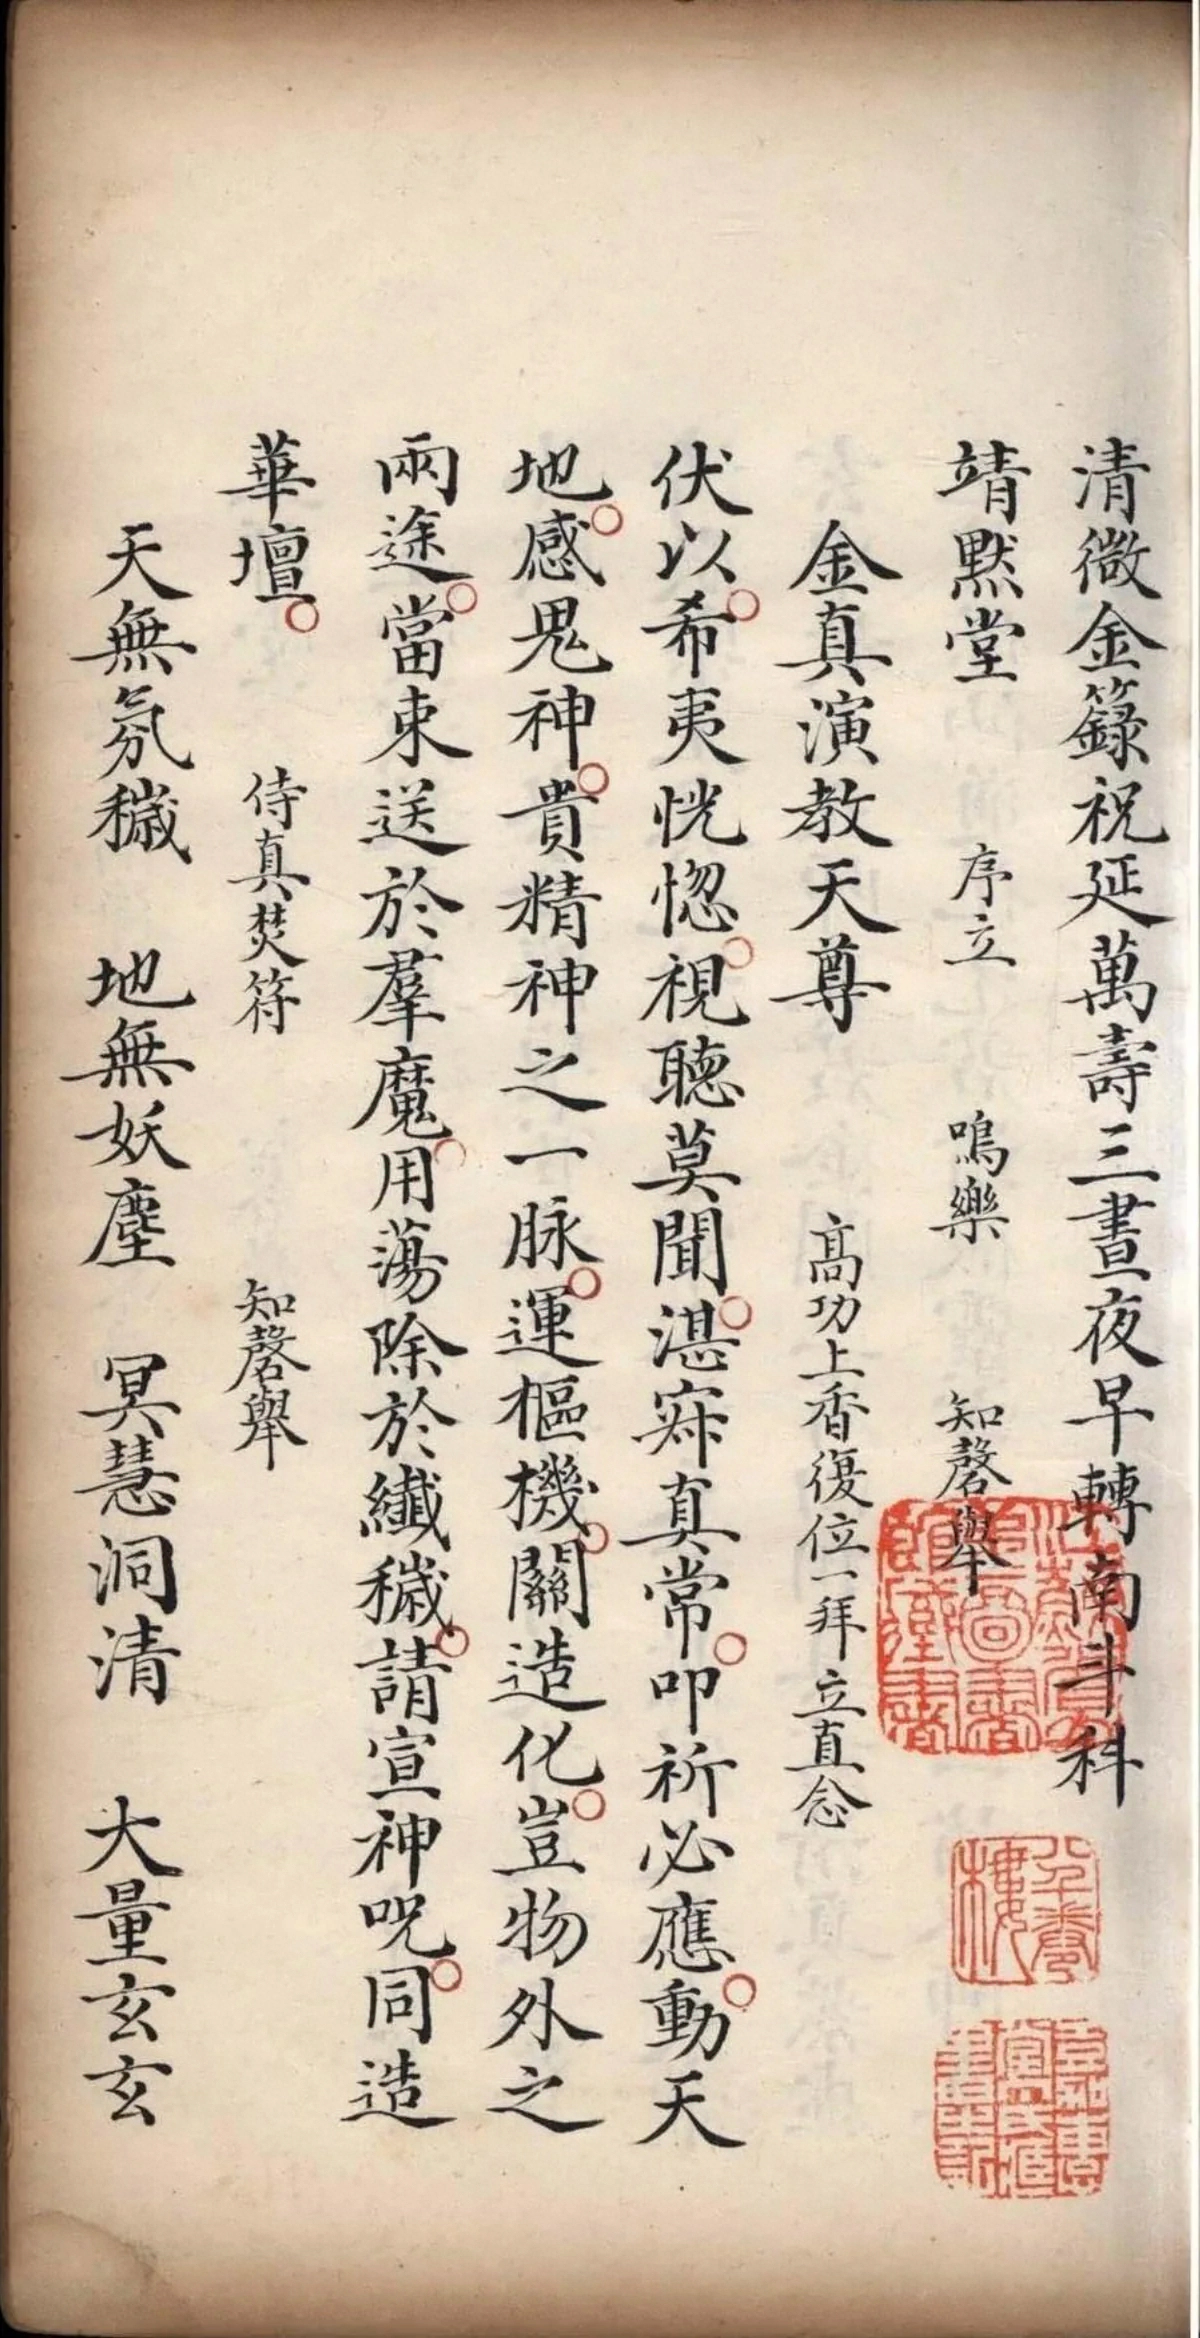 清微金籙祝延萬壽三晝夜早轉南斗科
靖默堂　序立　鳴樂　知磬舉
金真演教天尊　高功上香復位一拜立直念
伏以希夷恍惚視聽莫聞湛寂真常叩祈必應動天
地感鬼神貴精神之一脉運樞機關造化豈物外之
兩途當束送於羣魔用蕩除於纖穢請宣神呪同造
華壇　侍真焚符　知磬舉
天無氛穢　地無妖塵　冥慧洞清　大量玄玄